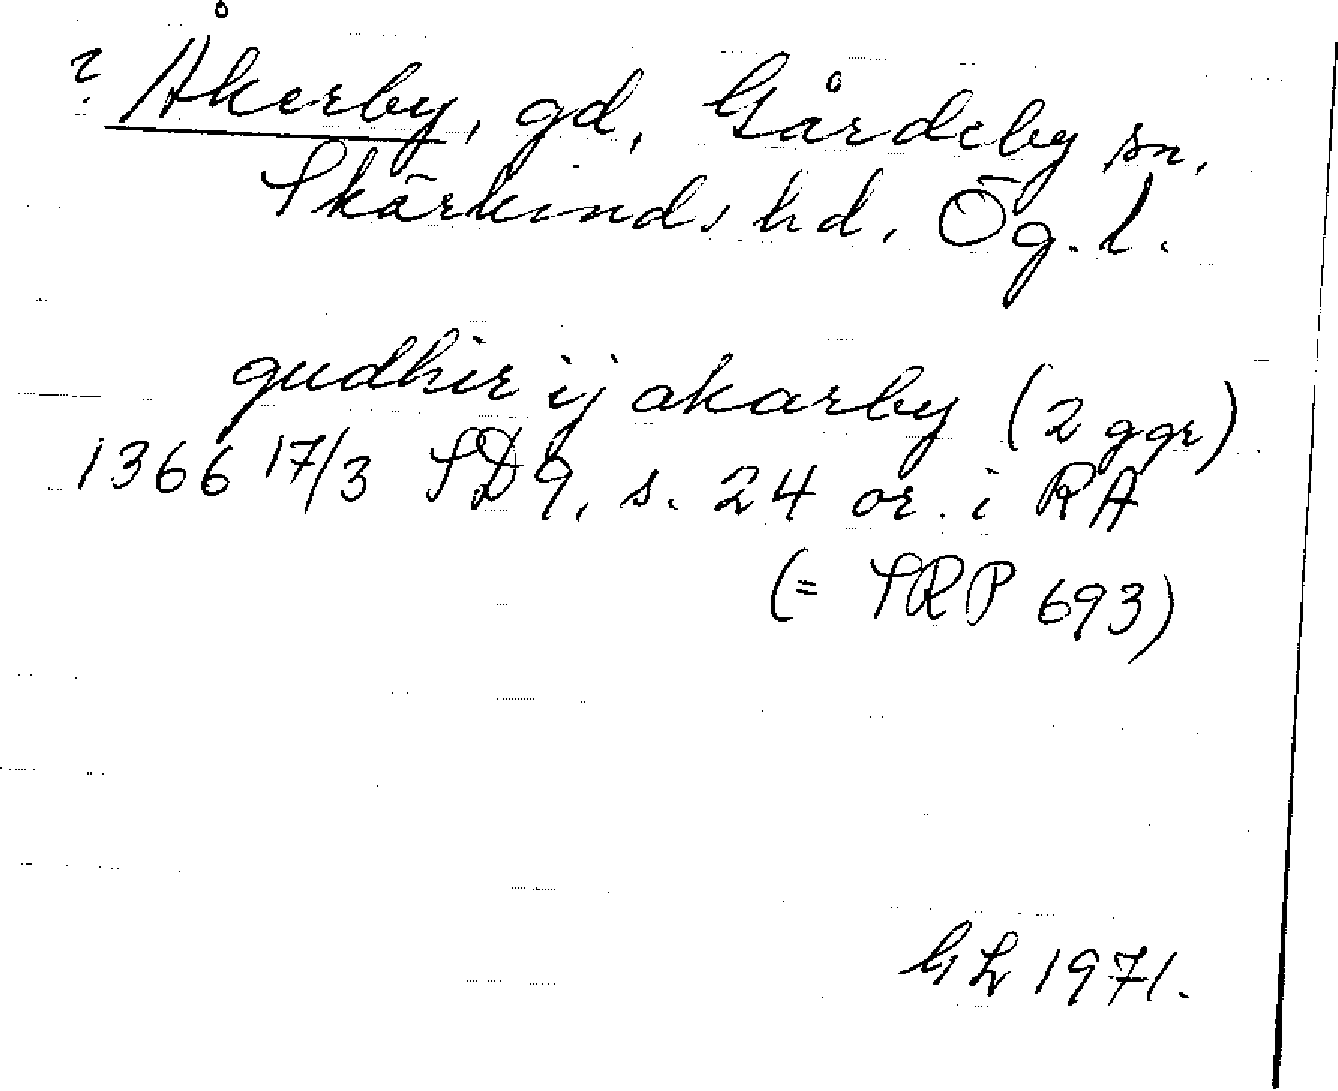 ? Åkerby, gd, Gårdeby sn,
Skärkinds hd, Ög. l.
gudhir ij akarby (2 ggr)
1366 17/3 SD 9, s. 24 or. i RA
(= SRP 693)
GL 1971.